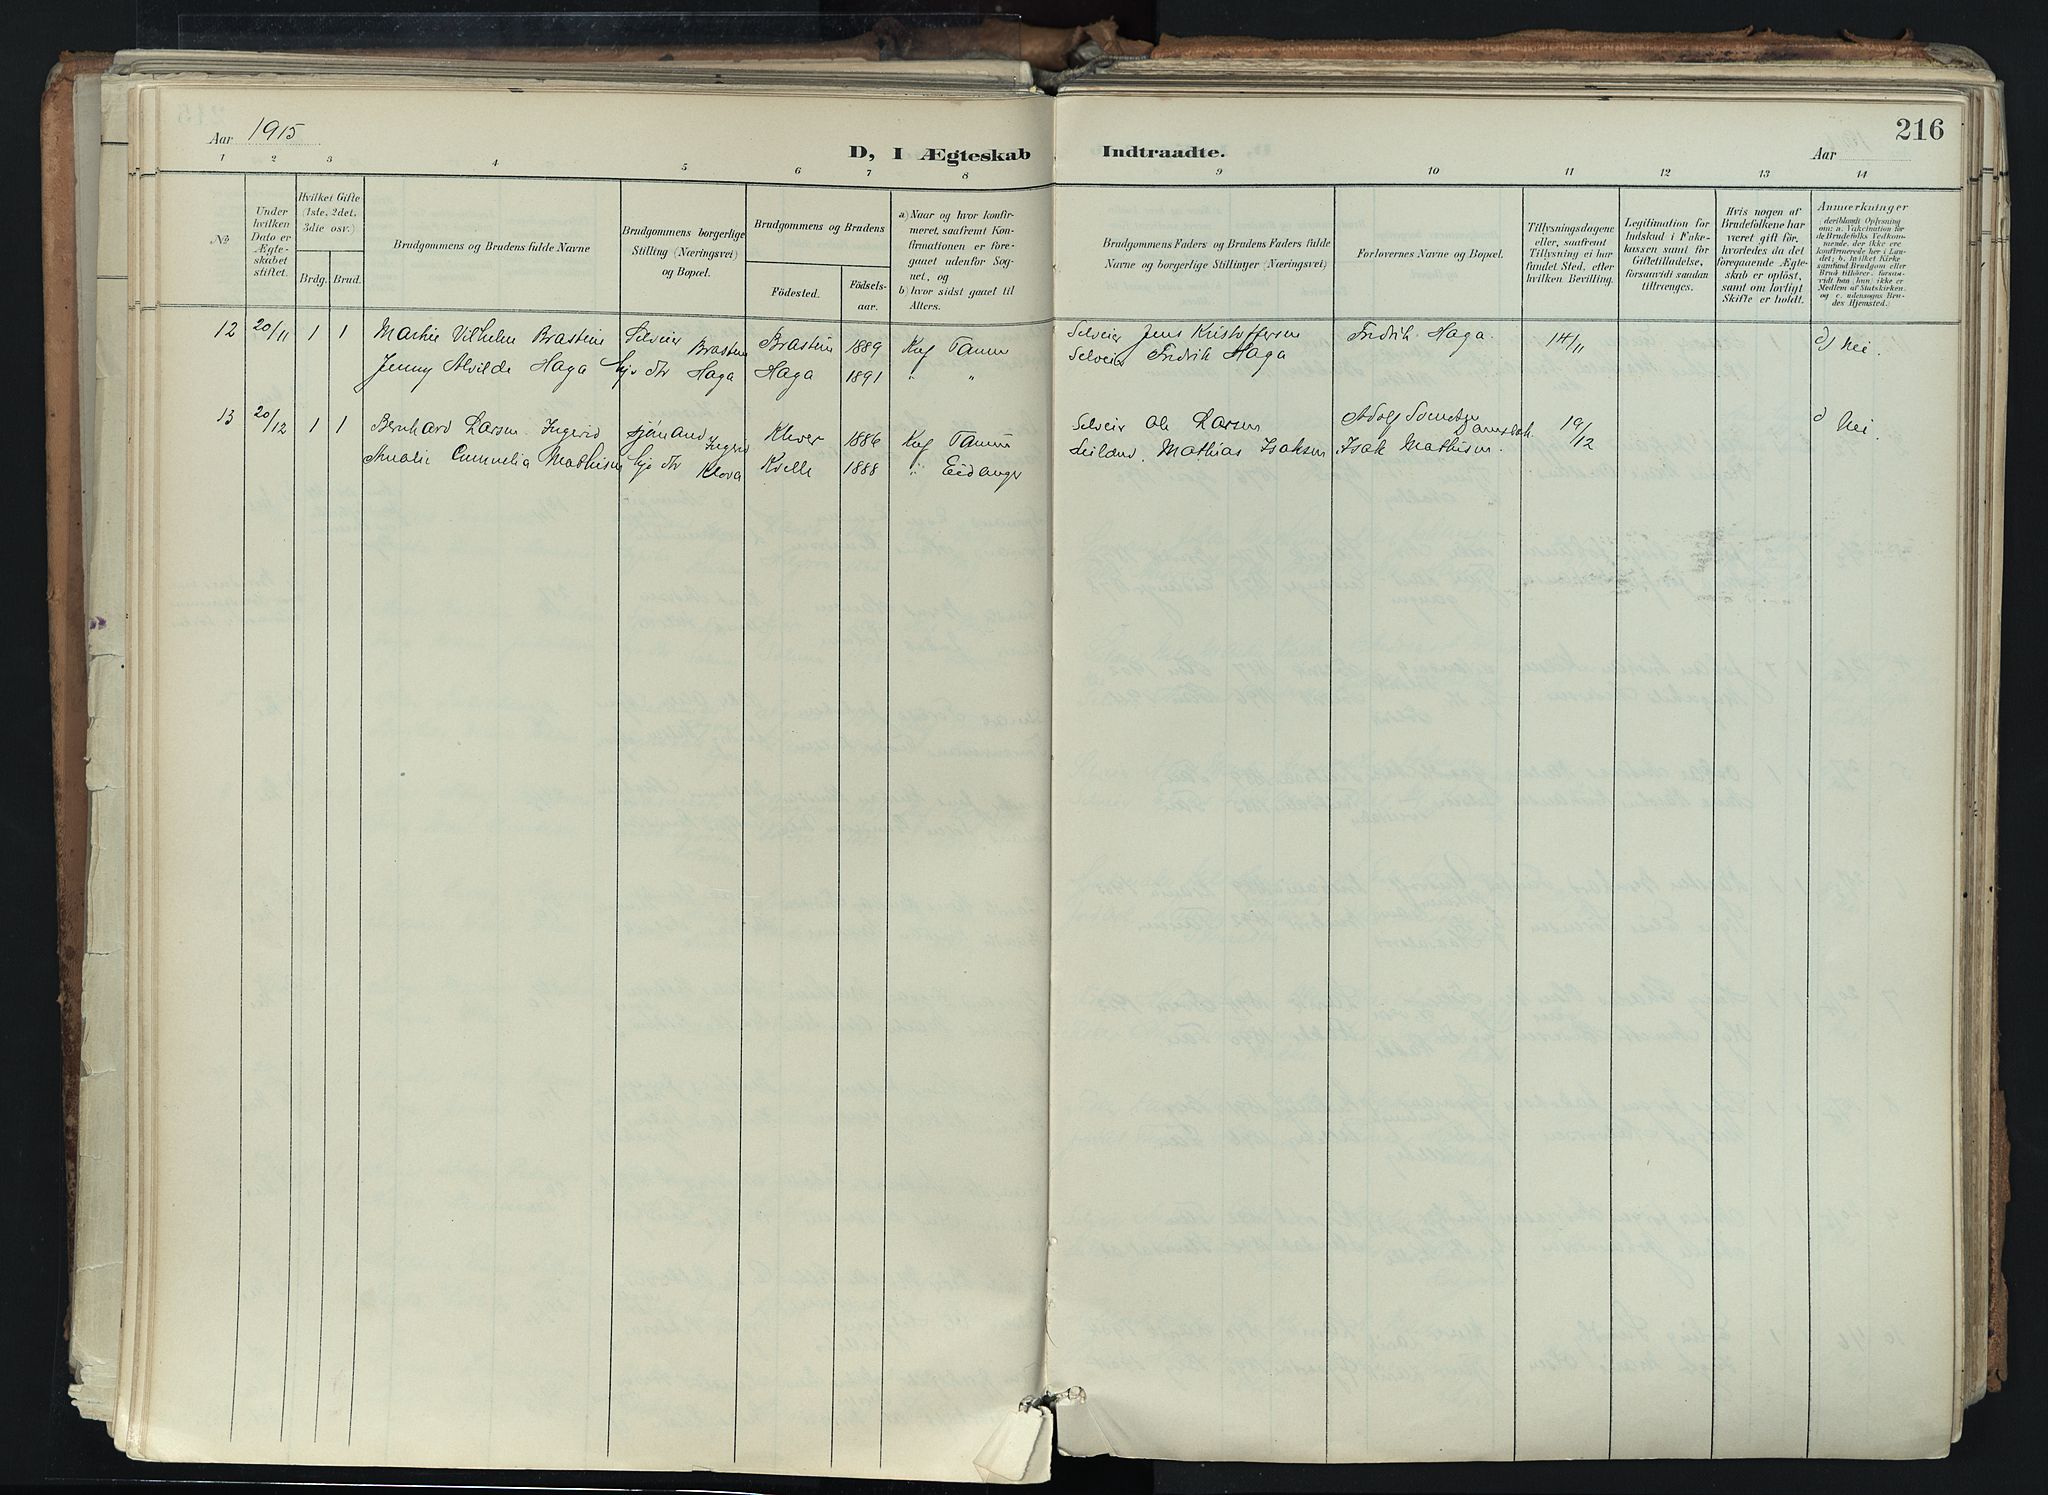 216
Aar 1915
Aar
D, I Ægteskab Indtraadte.
1 2 3 4 5 6 7 8 9 10 11 12 13 14
No
Under hvilken Dato er Ægteskabet stiftet.
Hvilket Gifte (1ste, 2det, 3die osv.)
Brdg. Brud.
Brudgommens og Brudens fulde Navne
Brudgommens borgerlige Stilling (Næringsvei) og Bopæl.
Brudgommens og Brudens
Fødested. Fødselsaar.
a) Naar og hvor konfirmeret, saafremt Konfirmationen er foregaaet udenfor Sognet, og
b) hvor sidst gaaet til Alters.
Brudgommens Faders og Brudens Faders fulde Navne og borgerlige Stillinger (Næringsvei)
Forlovernes Navne og Bopæl.
Tillysningsdagene eller, saafremt Tillysning ei har fundet Sted, efter hvilken Bevilling.
Legitimation for Indskud i Enkekassen samt for Giftetilladelse, forsaavidt saadan tiltrænges.
Hvis nogen af Brudefolkene har været gift før, hvorledes da det foregaaende Ægteskab er opløst, samt om lovligt Skifte er holdt.
Anmærkninger
(deriblandt Oplysning om: a. Vakcination for de Brudefolks Vedkommende, der ikke ere konfirmerede her i Landet; b. hvilket Kirkesamfund Brudgom eller Brud tilhører, forsaavidt han (hun) ikke er Medlem af Statskirken, og c. udensogns Brudes Hjemsted.
12 20/11 1 1 Martin Vilhelm Brastein Selveier Brastein Brastein 1889 Kuf Tanum Selveier Jens Kristoffersen Fredrik Haga. 14/11 d) Nei.
Jenny Alvilde Haga hjv dtr Haga Haga 1891 " " Selveier Fredrik Haga
13 20/12 1 1 Bernhard Larsen Ingerid sjømand Ingrid Klever 1886 Kuf Tanum Selveier Ole Larsen Adolf 19/12 d Nei.
Amalie Mathisen hjv dtr Klova Kvelle 1888 " Eidanger Mathias Isaksen Isak Mathisen.